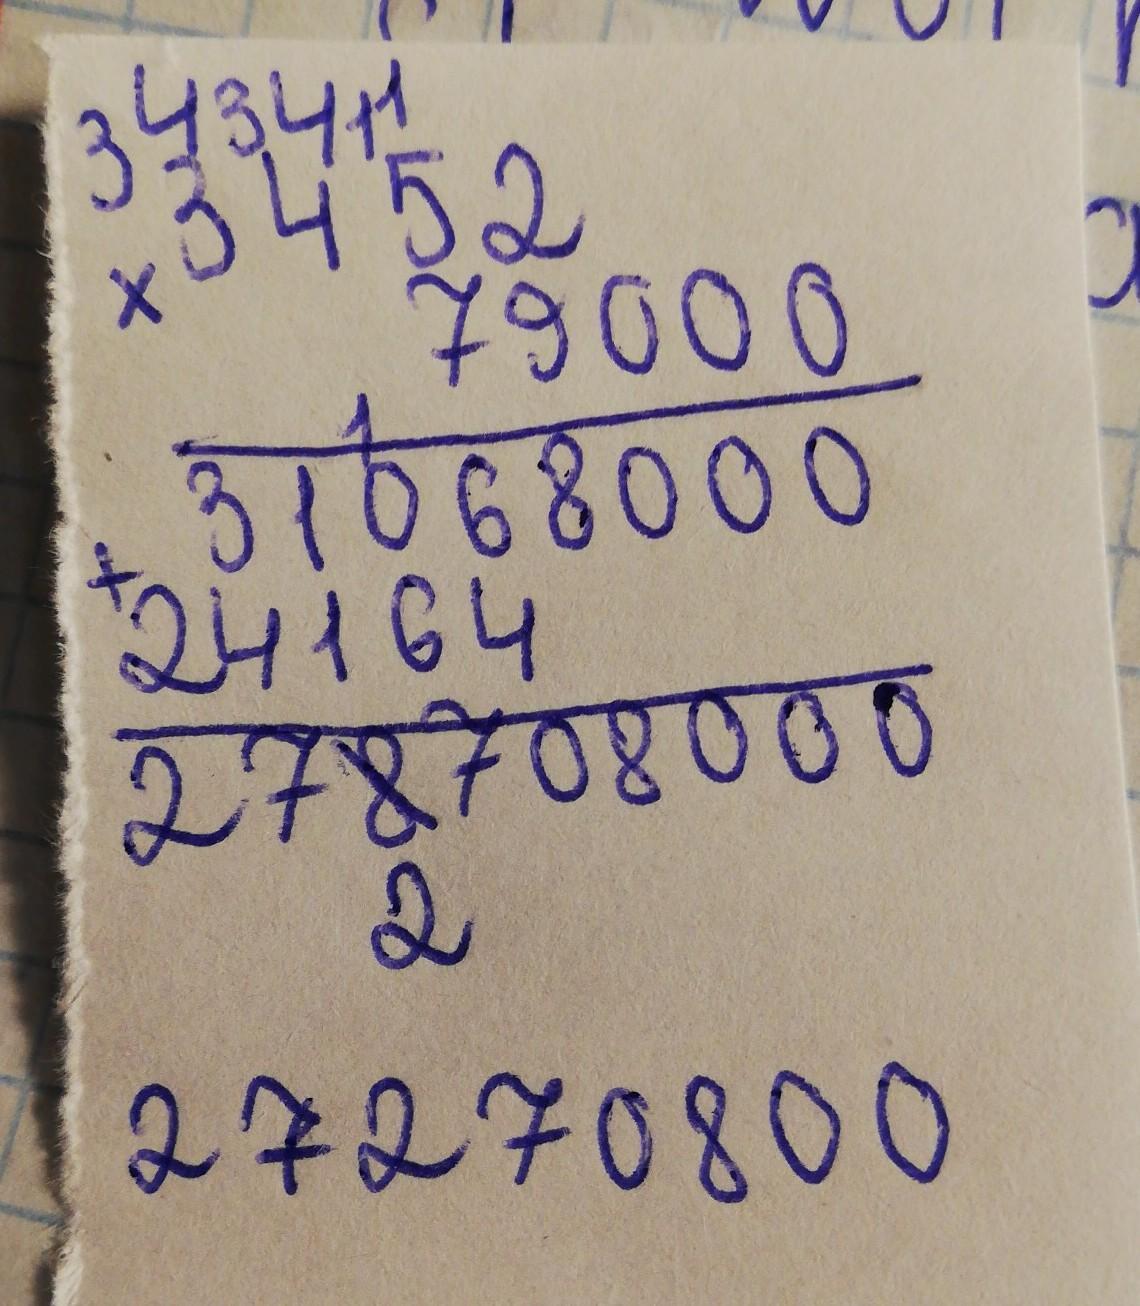 343411
3452
×
79000
1
31068000
+
24164
278708000
2
27270800